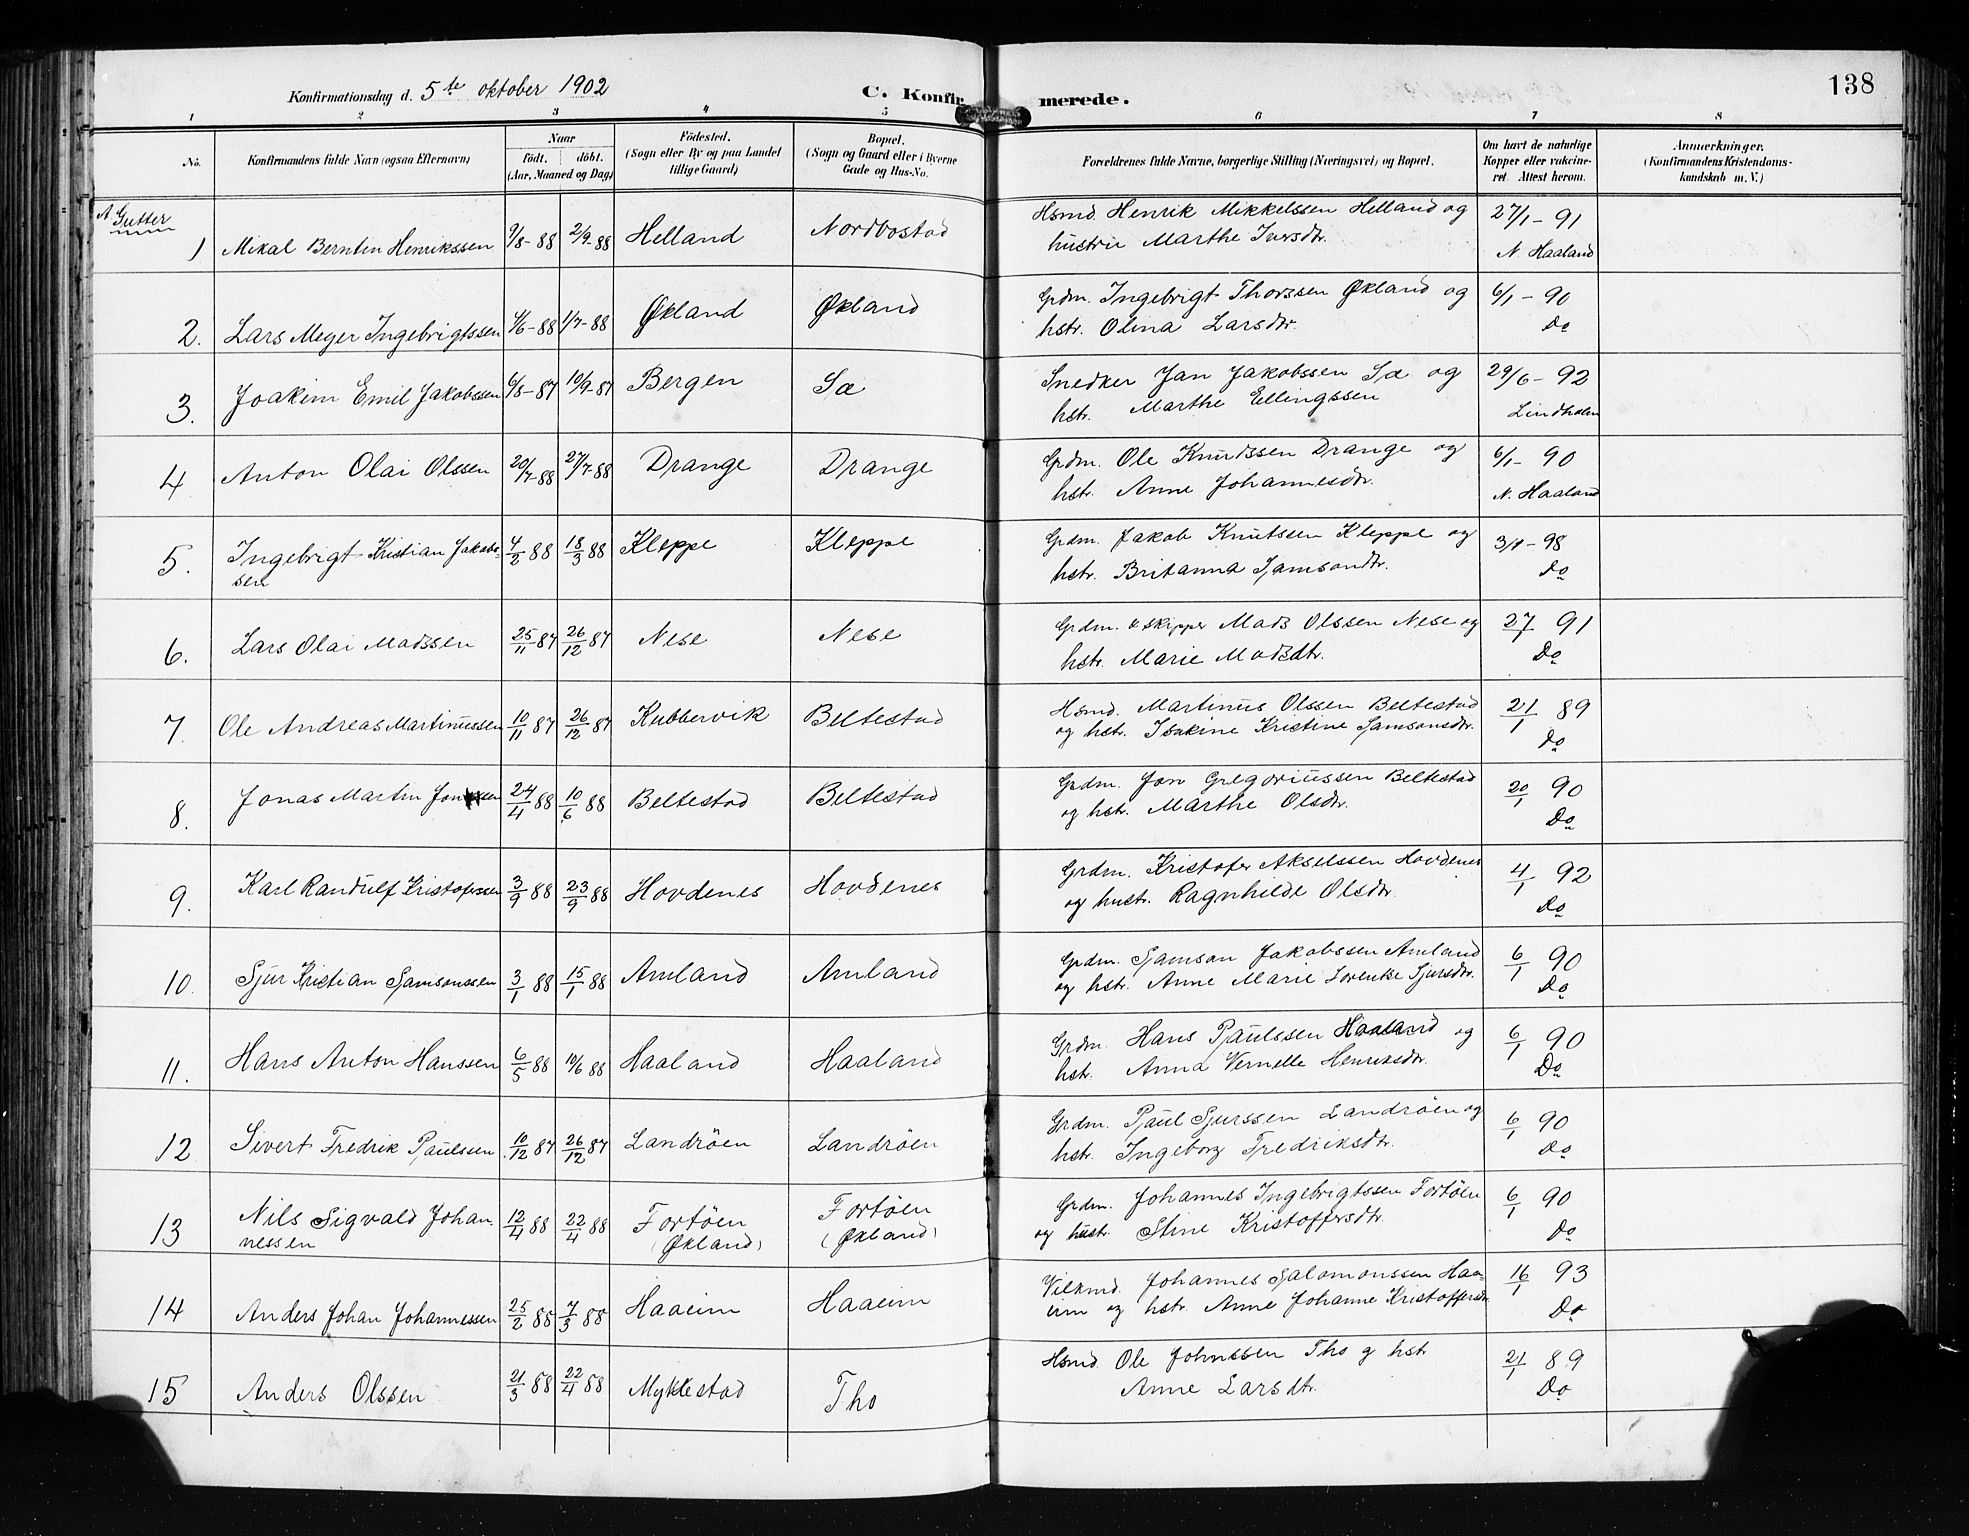 138
Konfirmationsdag d. 5te oktober 1902 C. Konfirmerede.
1 2 3 4 5 6 7 8
No. Konfirmandens fulde Navn (ogsaa Efternavn) Naar født. døbt. (Aar, Maaned og Dag) Födested. (Sogn eller By og paa Landet tillige Gaard) Bopæl. (Sogn og Gaard eller i Byerne Gade og Hus-No. Forældrenes fulde Navne, borgerlige Stilling (Næringsvei) og Bopæl. Om havt de naturlige Kopper eller vakcineret. Attest herom. Anmerkninger. (Konfirmandens Kristendomskundskab m. V.)
A. Gutter
1 Mikal Berntin Henrikssen 9/8-88 2/9-88 Helland Nordbostad Hsmd. Henrik Mikkelssen Helland og 27/1-91
hustru Marthe Iversdtr. N. Haaland
2. Lars Meyer Ingebrigtssen 4/6-88 1/7-88 Økland Økland Grdm. Ingebrigt Thorssen Økland og 6/1-90
hstr. Olina Larsdtr. Do
3. Joakim Emil Jakobssen 6/8-87 10/9-87 Bergen Sæ Snedker Jan Jakobssen Sæ og 29/6-92
hstr. Marthe Ellingssen Lindholm
4 Anton Olai Olssen 20/7-88 27/7-88 Drange Drange Grdm. Ole Knudssen Drange og 6/1-90
hstr. Anne Johannesdtr. N. Haaland
5. Ingebrigt Kristian Jakobs- 4/2 88 18/3 88 Kleppe Kleppe Grdm. Jakob Knutssen Kleppe og 3/1-98
sen hstr. Britanna Samsondtr. Do
6. Lars Olai Madssen 25/11 87 26/12 87 Nese Nese Grdm. & skipper Mads Olssen Nese og 27/1 91
hstr. Marie Madsdtr. Do
7. Ole Andreas Martinussen 10/11 87 26/12 87 Kubbervik Beltestad Hsmd. Martinus Olssen Beltestad 21/1 89
og hstr. Isakine Kristine Samsonsdtr. Do
8. Jonas Martin Jonssen 24/4 88 10/6 88 Beltestad Beltestad Grdm. Jon Gregoriussen Beltestad 20/1 90
og hstr. Marthe Olsdtr. Do
9. Karl Randulf Kristofersen 3/9 88 23/9 88 Hovdenes Hovdenes Grdm. Kristofer Akselssen Hovdenes 4/1 92
og hustr. Ragnhilde Olsdtr. Do
10. Sjur Kristian Samsonssen 3/1 88 15/1 88 Amland Amland Grdm. Samson Jakobssen Amland 6/1 90
og hstr. Anne Marie Lorentse Sjursdtr. Do
11. Hans Anton Hanssen 6/5 88 10/6 88 Haaland Haaland Grdm. Hans Paulssen Haaland og 6/1 90
hstr. Anna Vernelle Henriksdtr. Do
12 Sivert Fredrik Paulssen 10/12 87 26/12 87 Landrøen Landrøen Grdm. Paul Sjurssen Landrøen og 6/1 90
hstr. Ingeborg Fredriksdtr. Do
13 Nils Sigvald Johan- 12/4 88 22/4 88 Fortøen Fortøen Grdm. Johannes Ingebrigtssen Fortøen 6/1 90
nessen (Økland) (Økland) og hustr. Stine Kristoffersdtr. Do
14 Anders Johan Johannessen 25/2 88 7/3 88 Haaeim Haaeim Vilkmd. Johannes Salomonssen Haa- 16/1 93
eim og hstr. Anne Johanne Kristoffersdtr. Do
15 Anders Olssen 21/3 88 22/4 88 Myklestad Tho Hsmd Ole Johnssen Tho og hstr 21/1 89
Anne Larsdtr. Do